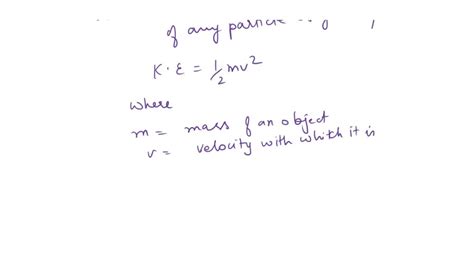 of any particle
K.E = 1/2 mv²
where
m = mass of an object
v = velocity with which it is